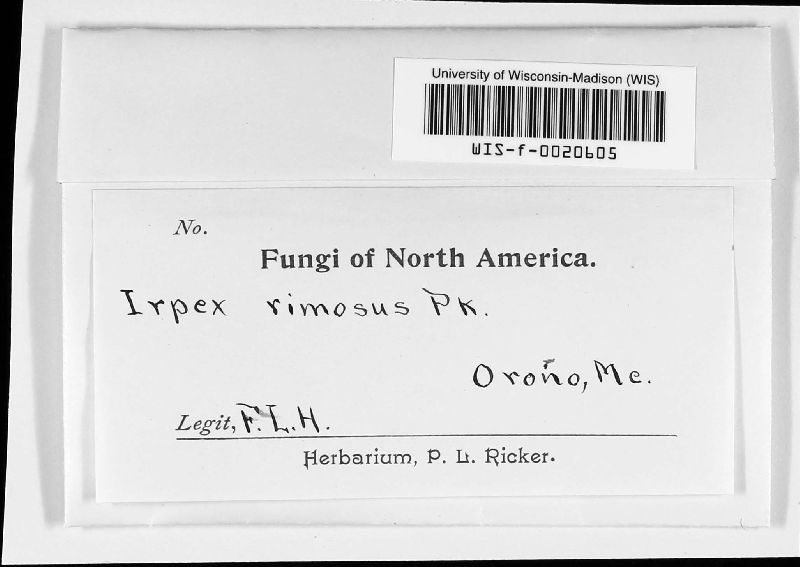 University of Wisconsin-Madison (WIS)
WIS-f-0020605
No.
Fungi of North America.
Irpex rimosus Pk.
Oroño, Me.
Legit, F. L. H.
Herbarium, P. L. Ricker.